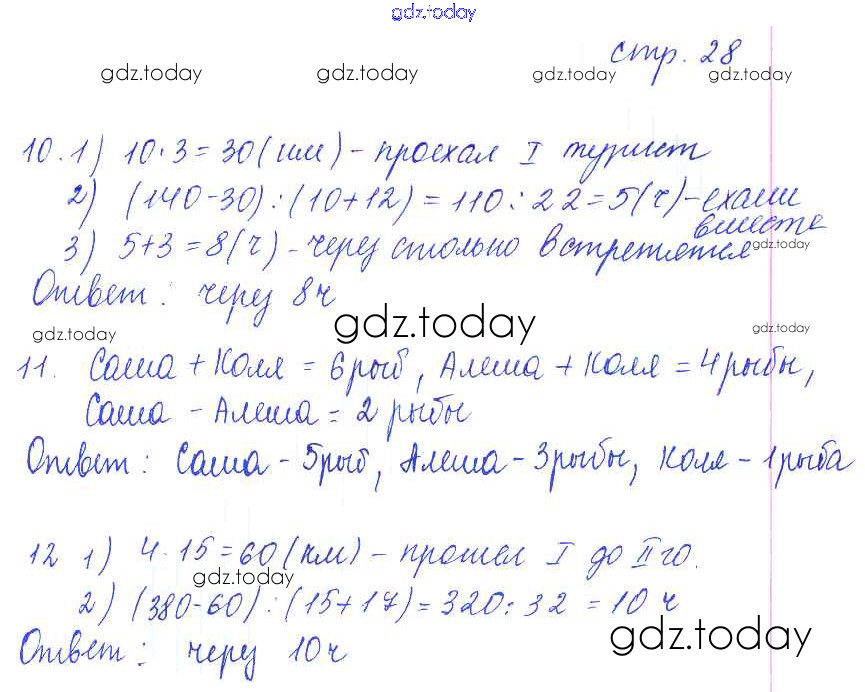 gdz.today
стр. 28
gdz.today gdz.today gdz.today gdz.today
10. 1) 10·3=30(км) - проехал I турист
2) (140-30):(10+12)=110:22=5(ч)-ехали
вместе
3) 5+3=8(ч) - через столько встретятся
gdz.today
Ответ: через 8ч
gdz.today gdz.today gdz.today
11. Саша + Коля = 6 рыб, Алеша + Коля = 4 рыбы,
Саша - Алеша = 2 рыбы
Ответ: Саша - 5 рыб, Алеша - 3 рыбы, Коля - 1 рыба
12 1) 4·15=60(км) - прошел I до II го.
gdz.today
2) (380-60):(15+17)=320:32=10ч
Ответ: через 10ч
gdz.today